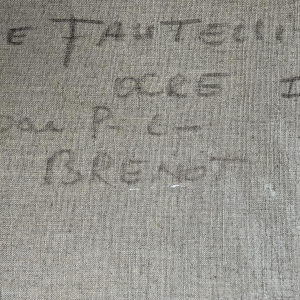 E FAUTEUIL
OCRE
par P- L-
BRENOT